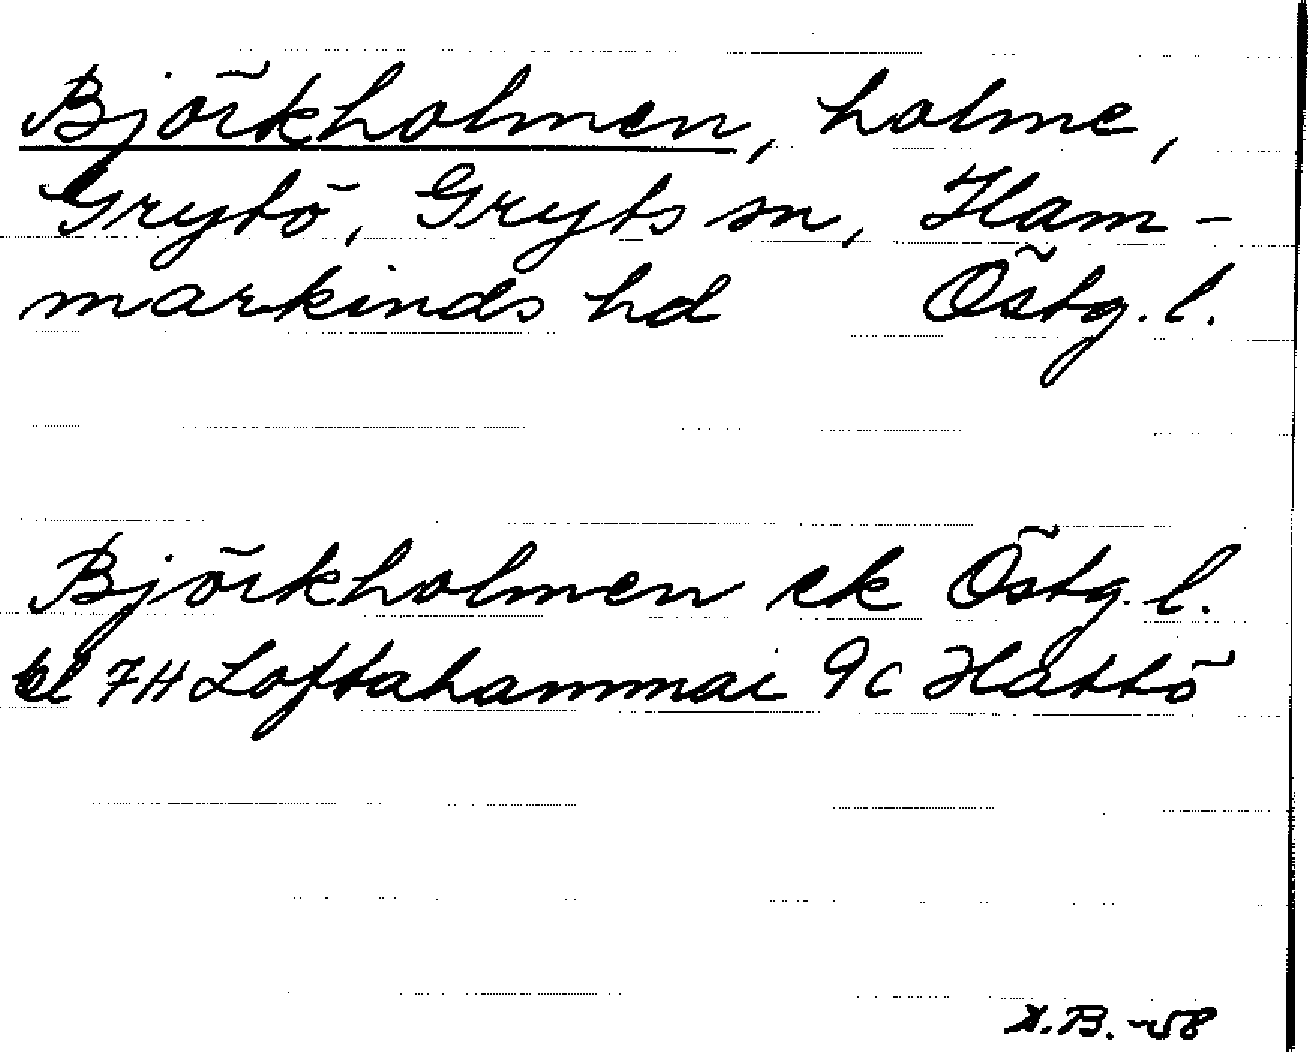 Björkholmen, holme,
Grytö, Gryts sn, Ham-
markinds hd Östg. l.
Björkholmen ek Östg. l.
bl 7H Loftahammar 9c Håttö
-58